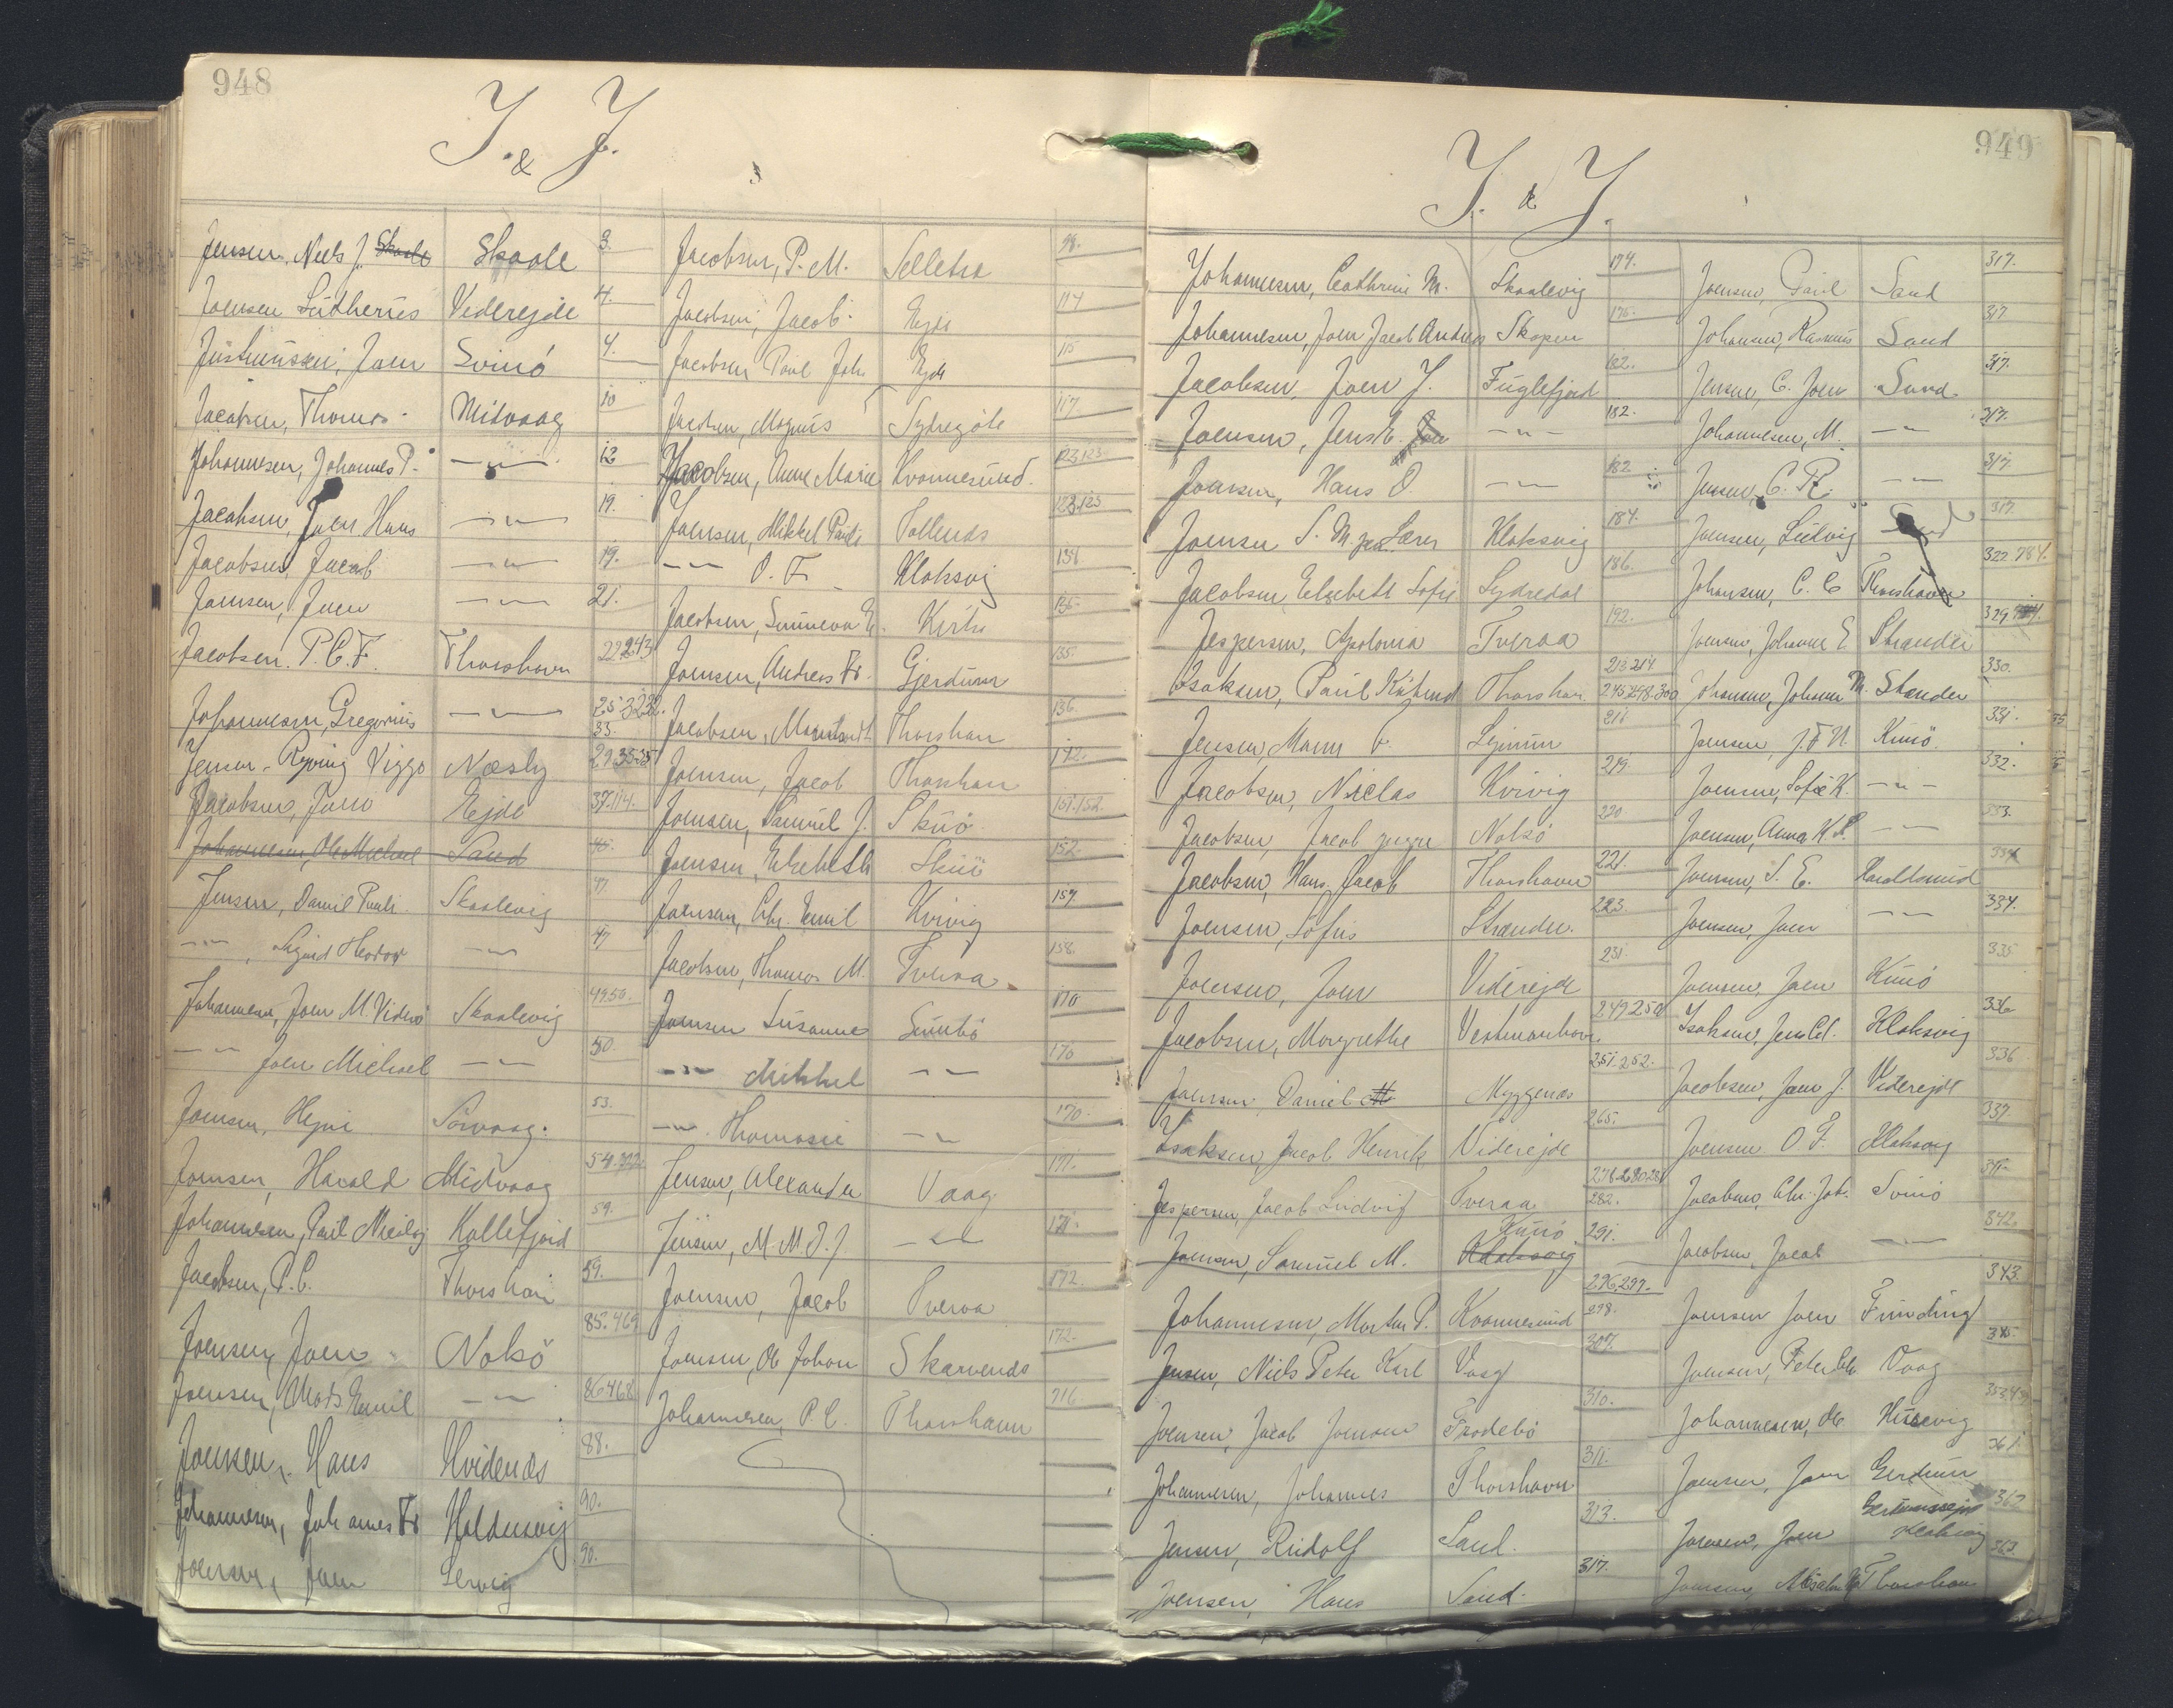 948
I. & J.
Jensen, Niels J. Skaale Skaale 3.
Joensen Lutherus Viderejde 4.
Justinussen, Joen Svinö 4.
Jacobsen, Thomas Midvaag 10
Johannesen, Johannes P. -"- 12
Jacobsen, Joen Hans -"- 19.
Jacobsen, Jacob -"- 19.
Joensen, Joen -"- 21.
Jacobsen. P.C.F. Thorshavn
Johannesen, Gregorius -"-
Jensen-Ryving Viggo Næsby
Jacobsen, Joen Ejde 37.114.
Johannesen, Ole Michael Sand
Jensen, Daniel Pauli Skaalevig 47.
-"-, Sigurd Heodor -"- 47
Johannesen, Joen M. Viderö Skaalevig 49.50.
-"- Joen Michael -"- 50.
Joensen, Hejni Sörvaag. 53.
Joensen, Harald Midvaag
Johannesen, Paul Nicilaj Kollefjord 59.
Jacobsen, P.C. Thorshavn 59.
Joensen, Joen Nolsö 85.469
Joensen, Mats Emil -"- 86 468
Joensen, Hans Hvidenæs 88.
Johannesen, Johannes Fr Haldersvig 90.
Joensen, Joen Lervig 90.
Jacobsen, P.M. Selletræ 98.
Jacobsen, Jacob Ejde 114
Jacobsen Poul Joh. Ejde 115
Jacobsen, Magnus Sydregöte 117
Jacobsen, Anne Marie Kvannesund. 123 123
Joensen, Mikkel Pauli Toftenæs 123.123
-"- O.F. Klaksvig 134
Jacobsen, Sunneva E. 135.
Joensen, Andreas Fr. Gjerdum 135.
Jacobsen, Thorshavn 136.
Joensen, Jacob Thorshavn 142.
Joensen, Samuel J. Skuö 151.152.
Joensen, Elsebeth Skuö 152.
Joensen, Chr. Emil Kvivig 157.
Jacobsen, Thomas M. Tveraa 158.
Joensen Susanne Sumbö 170
-"- Mikkel -"- 170
-"- Thomasia -"- 170.
Jensen, Alexander Vaag 171.
Jensen, M.M.J.J. -"- 171.
Joensen, Jacob Tveraa 172.
Joensen, Ole Johan Skarvenæs 172.
Johannesen, P.C. Thorshavn 716
949
I. & J.
Johannesen, Cathrine M. Skaalevig 174.
Johannesen, Joen Jacob Andreas Skopen 175.
Jacobsen, Joen J. Fuglefjord 182.
Joensen, Jens E. -"- 182.
Joensen, Hans D. -"- 182
Joensen S.M. Klaksvig 184.
Jacobsen Elsebeth Sofie Sydredal 186.
Jespersen, Apolonia Tveraa 192.
Isaksen, Paul Thorshavn 213.214 245.248.300
Jensen, Maren F. Lejnum 211
Jacobsen, Niclas Kvivig 219.
Jacobsen, Jacob yngre Nolsö 220.
Jacobsen, Hans Jacob Thorshavn 221.
Joensen, Sofus Strænder. 223.
Joensen, Joen Viderejde 231.
Jacobsen, Margrethe Vestmanhavn 249.250
Joensen Daniel M Myggenæs 251-252.
Isaksen, Jacob Henrik Viderejde 265.
Jespersen, Jacob Ludvig Tveraa 282.
Joensen, Samuel M. Klaksvig Kunö 291.
Johannesen, Morten P. Kvannesund 296,297. 298.
Jensen, Niels Peter Karl Vaag 307.
Joensen, Jacob Joensen Frodebö 310.
Johannesen, Johannes Thorshavn 311.
Jensen, Rudolf Sand. 313.
Joensen, Hans Sand. 317.
Joensen, Paul Sand 317.
Johansen, Rasmus Sand 317
Jensen, C. Joen Sand 317.
Johannesen, M. -"- 317.
Jensen, C.R. -"- 317.
Joensen, Ludvig Sand 317.
Johansen, C.C. Thorshavn 322.784.
Joensen, Johanne E. Strænder 329
Johansen, Johanne M. Strænder 330.
Joensen, J.F.N. Kunö. 331.
Joensen, Sofie K. -"- 332.
Joensen, Anna K.S. -"- 333.
Joensen, S.E. Haraldssund 334
Joensen, Joen -"- 334.
Joensen, Joen Kunö 335
Isaksen, Klaksvig 336
Jacobsen, Joen J. Viderejde 336
Joensen O.F. Klaksvig 337
Jacobsen, Chr. Joh. Svinö
Jacobsen Jacob -"- 342.
Joensen Joen Funding 343.
Joensen, Peter Chr. Vaag 345.
Johannesen, Ole Husevig
Joensen, Joen Gerdum 361
Joensen, Joen Klaksvig 362
Joensen, Thorshavn 363.